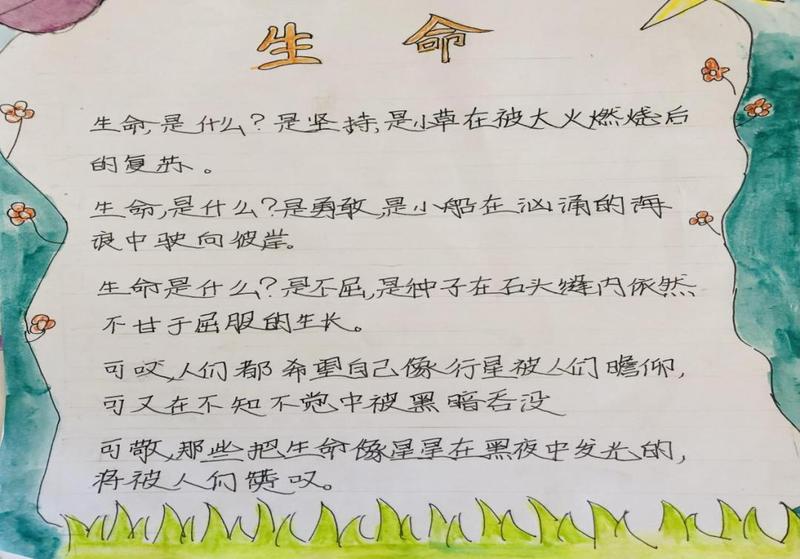 生命
生命,是什么?是坚持,是小草在被大火燃烧后
的复苏。
生命,是什么?是勇敢,是小船在汹涌的海
浪中驶向彼岸。
生命是什么?是不屈,是种子在石头缝内依然
不甘于屈服的生长。
可叹,人们都希望自己像行星被人们瞻仰,
可又在不知不觉中被黑暗吞没
可敬,那些把生命像星星在黑夜中发光的,
将被人们赞叹。